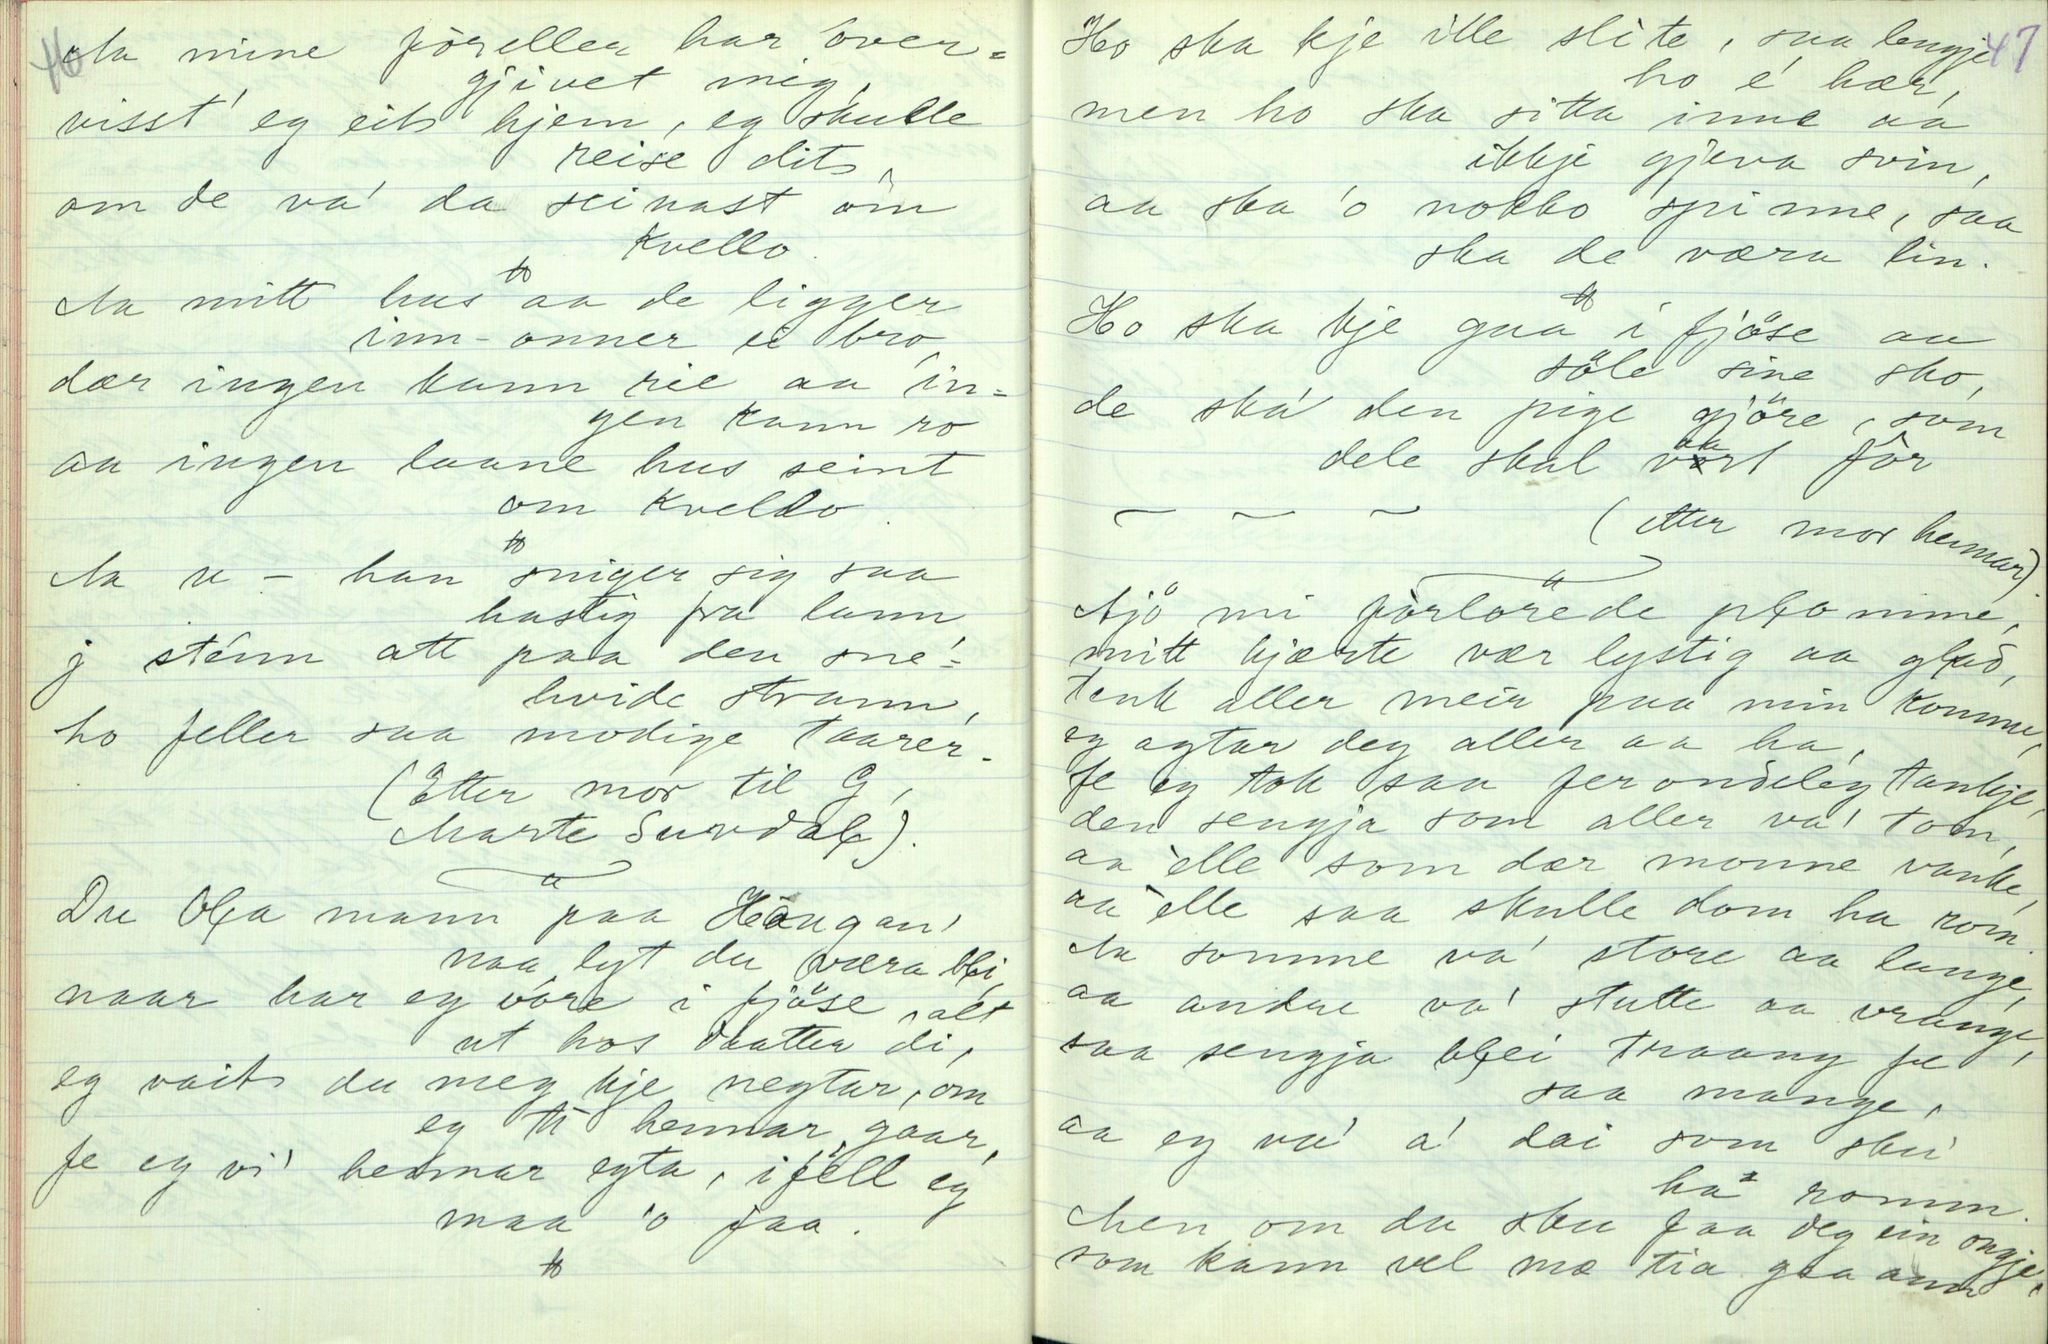 46
Aa mine förellar har over=
gjivet mig,
visst' eg eits hjem, eg skulle
reise dits,
om de va' da seinast om
kvello.
Aa mitt hus aa de ligger
inn-onner ei bro,
dær ingen kann rie aa in=
gen kann ro
aa ingen laane hus seint
om kveldo.
Aa u - han sniger sig saa
hastig fra lann
j sténn att paa den sne'=
hvide strann,
ho feller saa modige taarer.
(Etter mor til G,
Marte Surdal).
Du Ola mann paa Haugan'
naa lyt du væra bli,
naar har eg vöre i fjöse, alt
ut hos daatter di,
eg vaits du meg kje negtar, om
eg ti hennar gaar,
fe eg vi' hennar egta, ifell eg
maa 'o faa.
47
Ho ska kje ille slite, saa lengje
ho e' hær,
men ho ska sitta inne aa
ikkje gjeva svin,
aa ska 'o nokko spinne, saa
ska de væra lin.
Ho ska kje gaa i fjöse aa
söle sine sko,
de ska' den pige gjöre, som
dele skal vaart för
(etter mor hennar)
Ajö mi förlorede plomme,
mitt hjærte vær lystig aa glad,
tenk aller meir paa min komme,
eg agtar deg aller aa ha,
fe eg tok saa ferondeleg tankje,
den sengja som aller va' tom,
aa elle som dær monne vanke,
aa elle saa skulle dom ha rom.
Aa somme va' store aa lange,
aa andre va' stutte aa vrange,
saa sengja blei traang fe
saa mange,
aa eg va' a' dai som sku'
ha romm.
Men om du sku faa deg ein ongje,
som kann vel mæ tia gaa ann